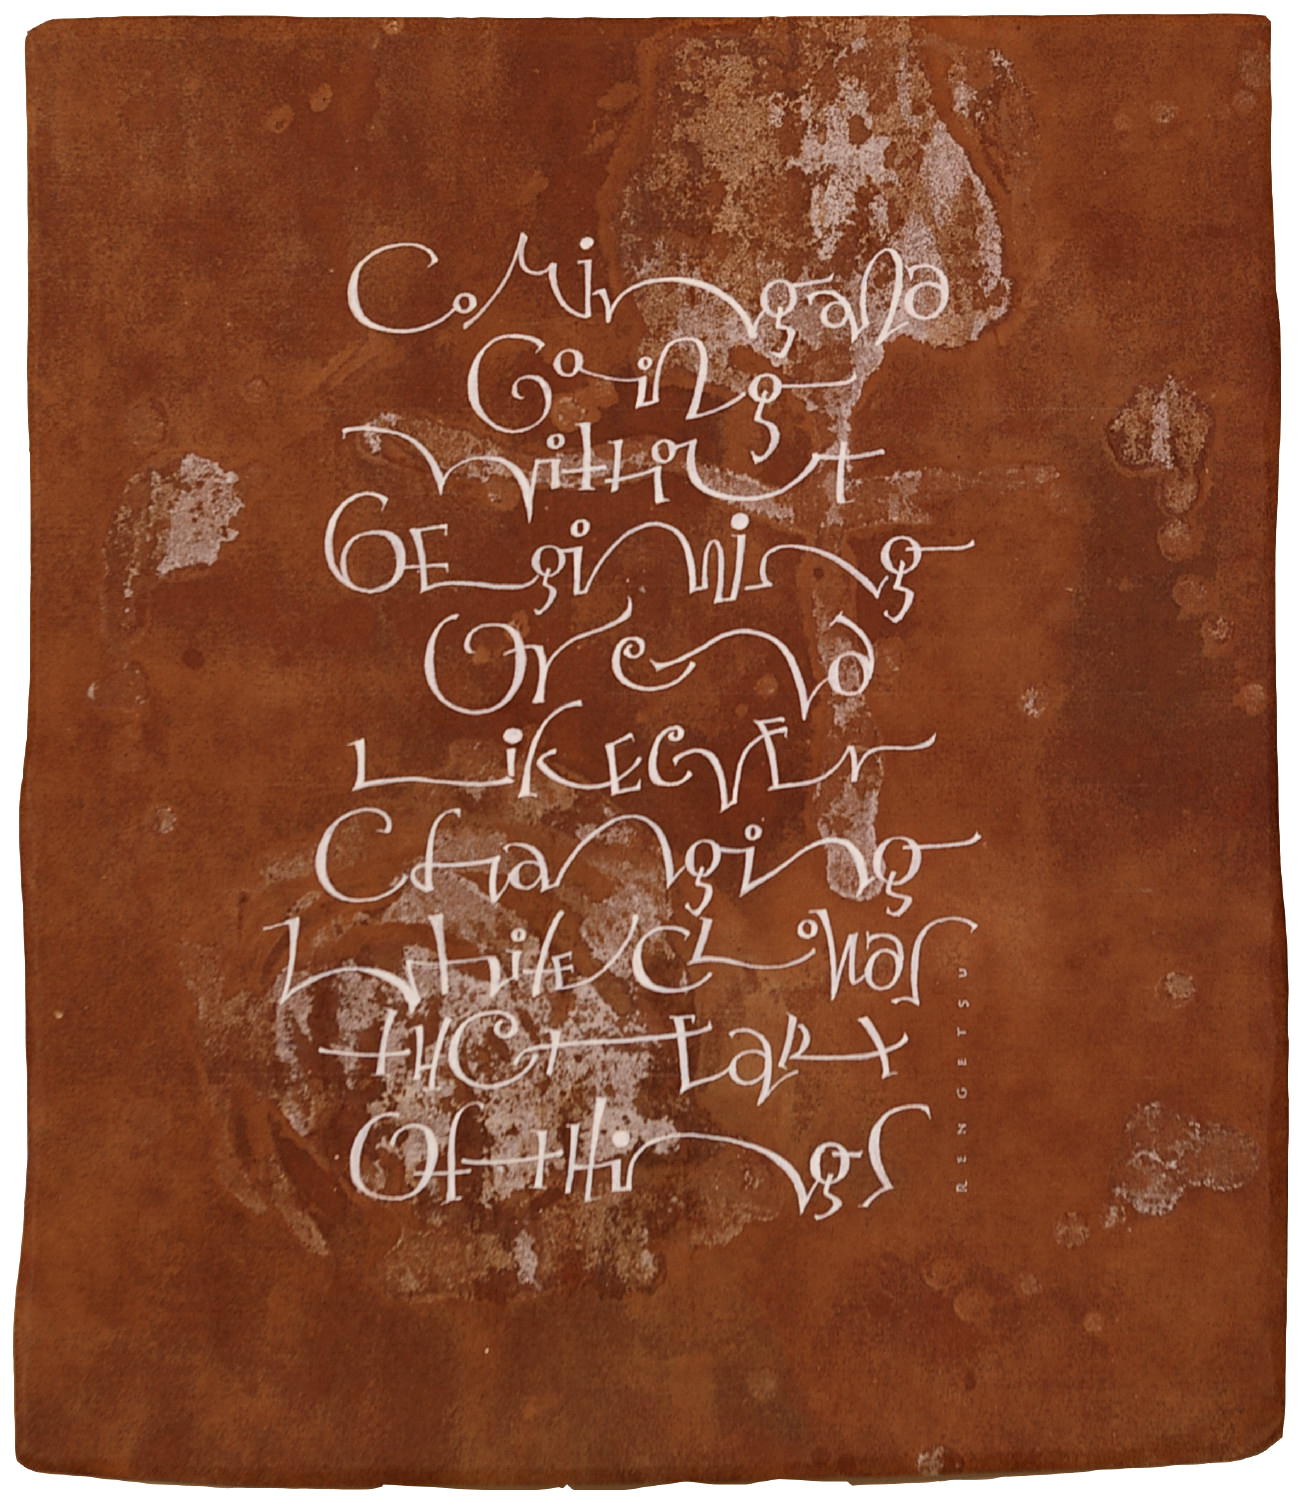 Coming and
Going
Without
Beginning
Or end
Like ever
Changing
White clouds
the heart
Of things
RENGETSU